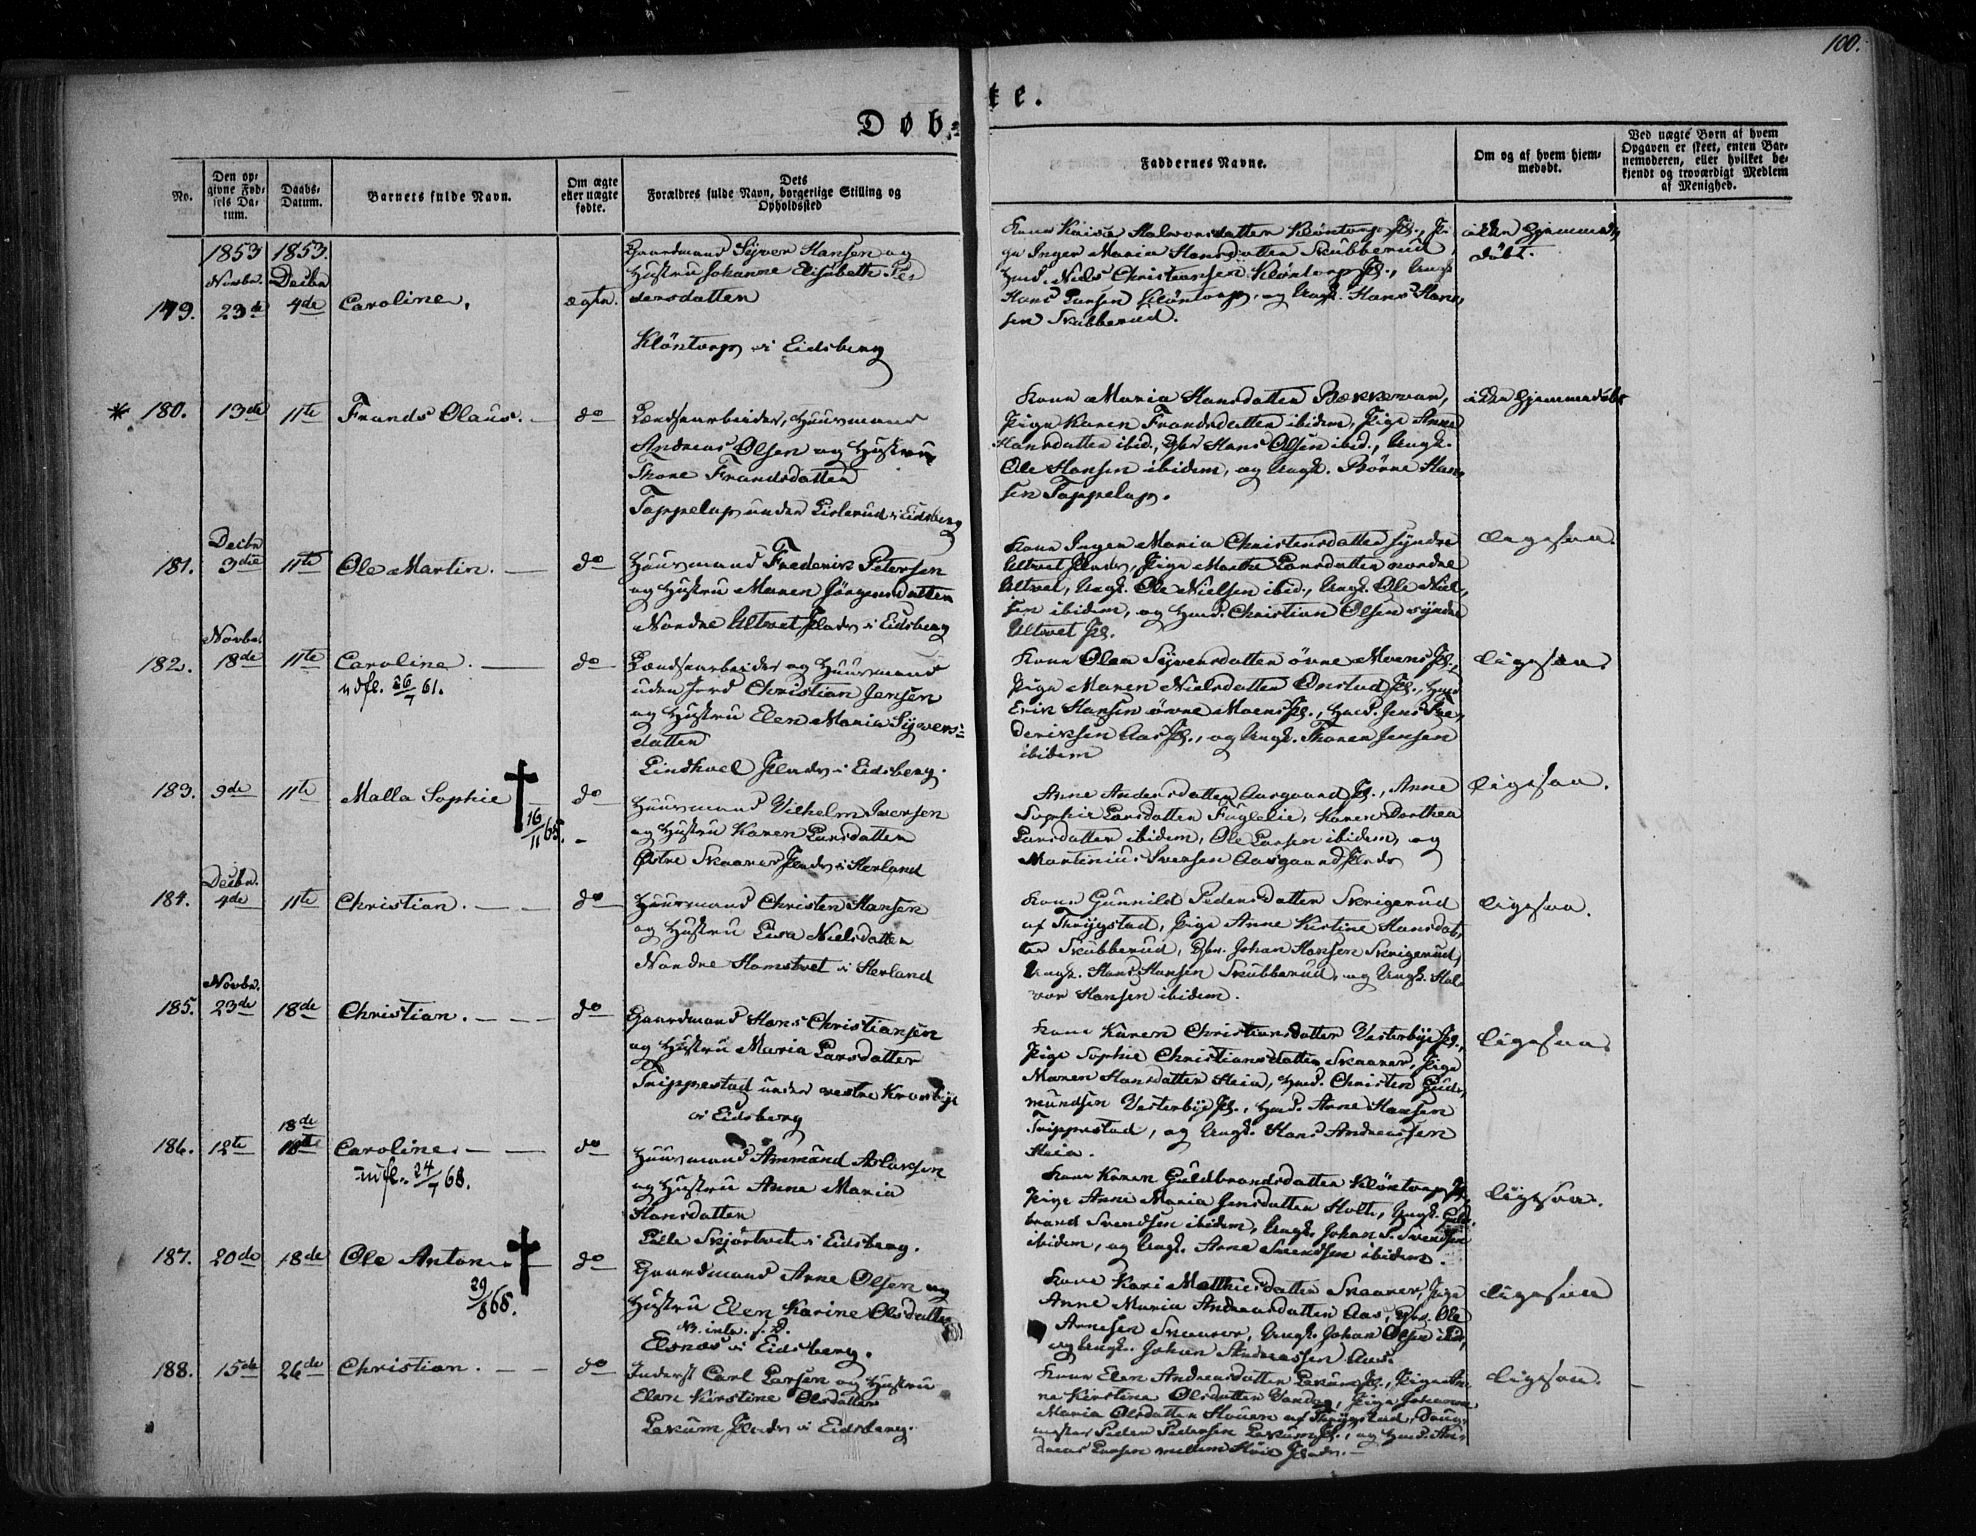 100.
Døb=
te.
No.
Den op-
givne Fød-
sels Da-
tum.
Daabs-
Datum.
Barnets fulde Navn.
Om ægte
eller uægte
fødte.
Dets
Forældres fulde Navn, borgerlige Stilling og
Opholdssted
Faddernes Navne.
Om og af hvem hjem-
medøbt.
Ved uægte Børn af hvem
Opgaven er skeet, enten Bar-
nemoderen, eller hvilket be-
kjendt og troværdigt Medlem
af Menighed.
1853 1853.
Novbr. Decbr
179. 23de 4de Caroline. ægte.
Gaardmand Syver Hansen og
Hustru Johanne Elisabeth Pe-
dersdatter
Klöntorp i Eidsberg
Kone Kaisa Halvorsdatter Klöntorp Pl., Pi-
ge Inger Maria Hansdatter Skubberud,
Hmd. Niels Christiansen Klöntorp Pl., Ungk.
Hans Larsen Klöntorp, og Ungk. Hans Han-
sen Skubberud.
ikke hjemme-
döbt.
* 180. 13de 11te Frands Olaus. — do
Lændsearbeider, Huusmand
Andreas Olsen og Hustru
Thore Frandsdatter
Toppelup under Lislerud i Eidsberg
Kone Maria Hansdatter Bækkevar,
Pige Karen Frandsdatter ibidem, Pige Anne
Hansdatter ibid., Gbr Hans Olsen ibid., Ungk.
Ole Hansen ibidem, og Ungk. Börne Han-
sen Toppelup.
ikke hjemmedöbt
Decbr
181. 3die 11te Ole Martin. — do
Huusmand Frederik Petersen
og Hustru Maren Jörgensdatter
Nordre Ultvet Plads i Eidsberg
Kone Inger Maria Christensdatter syndre
Ultvet Plads, Pige Marthe Larsdatter nordre
Ultvet, Ungk. Ole Nielsen ibid., Ungk. Ole Niel-
sen ibidem, og Hmd. Christian Olsen syndre
Ultvet Pl.
ligesaa.
Novbr.
182. 18de 11te Caroline. — do
udfl. 26/7 61.
Lændsearbeider og Huusmand
uden Jord Christian Jensen
og Hustru Elen Maria Syvers=
datter
Lindhoel Plads i Eidsberg.
Kone Olea Syversdatter övre Moens Pl.,
Pige Maren Nielsdatter Onstad Pl., Hmd
Erik Hansen övre Moens Pl., Hmd. Jens Fre-
deriksen Aas Pl., og Ungk. Thorer Jensen
ibidem
ligesaa.
183. 9de 11te Malla Sophie † do
16/11 65.
Huusmand Vilhelm Iversen
og Hustru Karen Larsdatter
Østre Skaarer Plads i Herland
Anne Andersdatter Aasgaard Pl., Anne
Sophie Larsdatter Fuglelie, Karen Dorthea
Larsdatter ibidem, Ole Larsen ibidem, og
Martinius Iversen Aasgaard Plads
ligesaa.
Decbr.
184. 4de 11te Christian. — do
Huusmand Christen Hansen
og Hustru Lisa Nielsdatter
Nordre Homstvet i Herland
Kone Gunnild Pedersdatter Skrigerud
af Thrygstad, Pige Anne Kirstine Hansdat-
ter Skubberud, Gbr. Johan Hansen Skrigerud,
Ungk. Hans Hansen Skubberud, og Ungk. Hal-
vor Hansen ibidem.
ligesaa.
Novbr.
185. 23de 18de Christian. — do
Gaardmand Hans Christiansen
og Hustru Maria Larsdatter
Trippestad under vestre Krosbye
i Eidsberg
Kone Karen Christiansdatter Vesterbye Pl.,
Pige Sophie Christiansdatter Skaarer, Pige
Maren Hansdatter Heia, Hmd. Christen Gud-
mundsen Vesterbye Pl., Hmd. Arne Hansen
Trippestad, og Ungk. Hans Andreassen
Heia.
ligesaa.
18de
186. 12te Caroline. — do
udfl. 24/7 68.
Huusmand Ammund Aslaksen
og Hustru Anne Maria
Hansdatter
Lille Skjörtvet i Eidsberg.
Kone Karen Guldbrandsdatter Klöntorp Pl.
Pige Anne Maria Jensdatter Holte, Ungk. Guld-
brand Svendsen ibidem, Ungk. Johan S. Svendsen
ibidem, og Ungk. Arne Svendsen ibidem.
ligesaa.
187. 20de 18de Ole Anton. † do
29/8 65.
Gaardmand Arne Olsen og
Hustru Elen Karine Olsdatter
Elsnes i Eidsberg.
Kone Kari Matthisdatter Skaarer, Pige
Anne Maria Andreasdatter Aas, Gbr. Ole
Arnesen Skaarer, Ungk. Johan Olsen ibid,
og Ungk. Johan Andreassen Aas.
ligesaa
188. 15de 26de Christian. — do
Inderst Carl Larsen og Hustru
Elen Kirstine Olsdatter
Lekum Plads i Eidsberg.
Kone Elen Andreasdatter Lekum Pl., Pige An-
ne Kirstine Olsdatter, Pige Johanne
Maria Olsdatter af Thrygstad,
Peder Pedersen Lekum Pl., og Hmd. An-
dreas Larsen Plads.
ligesaa.